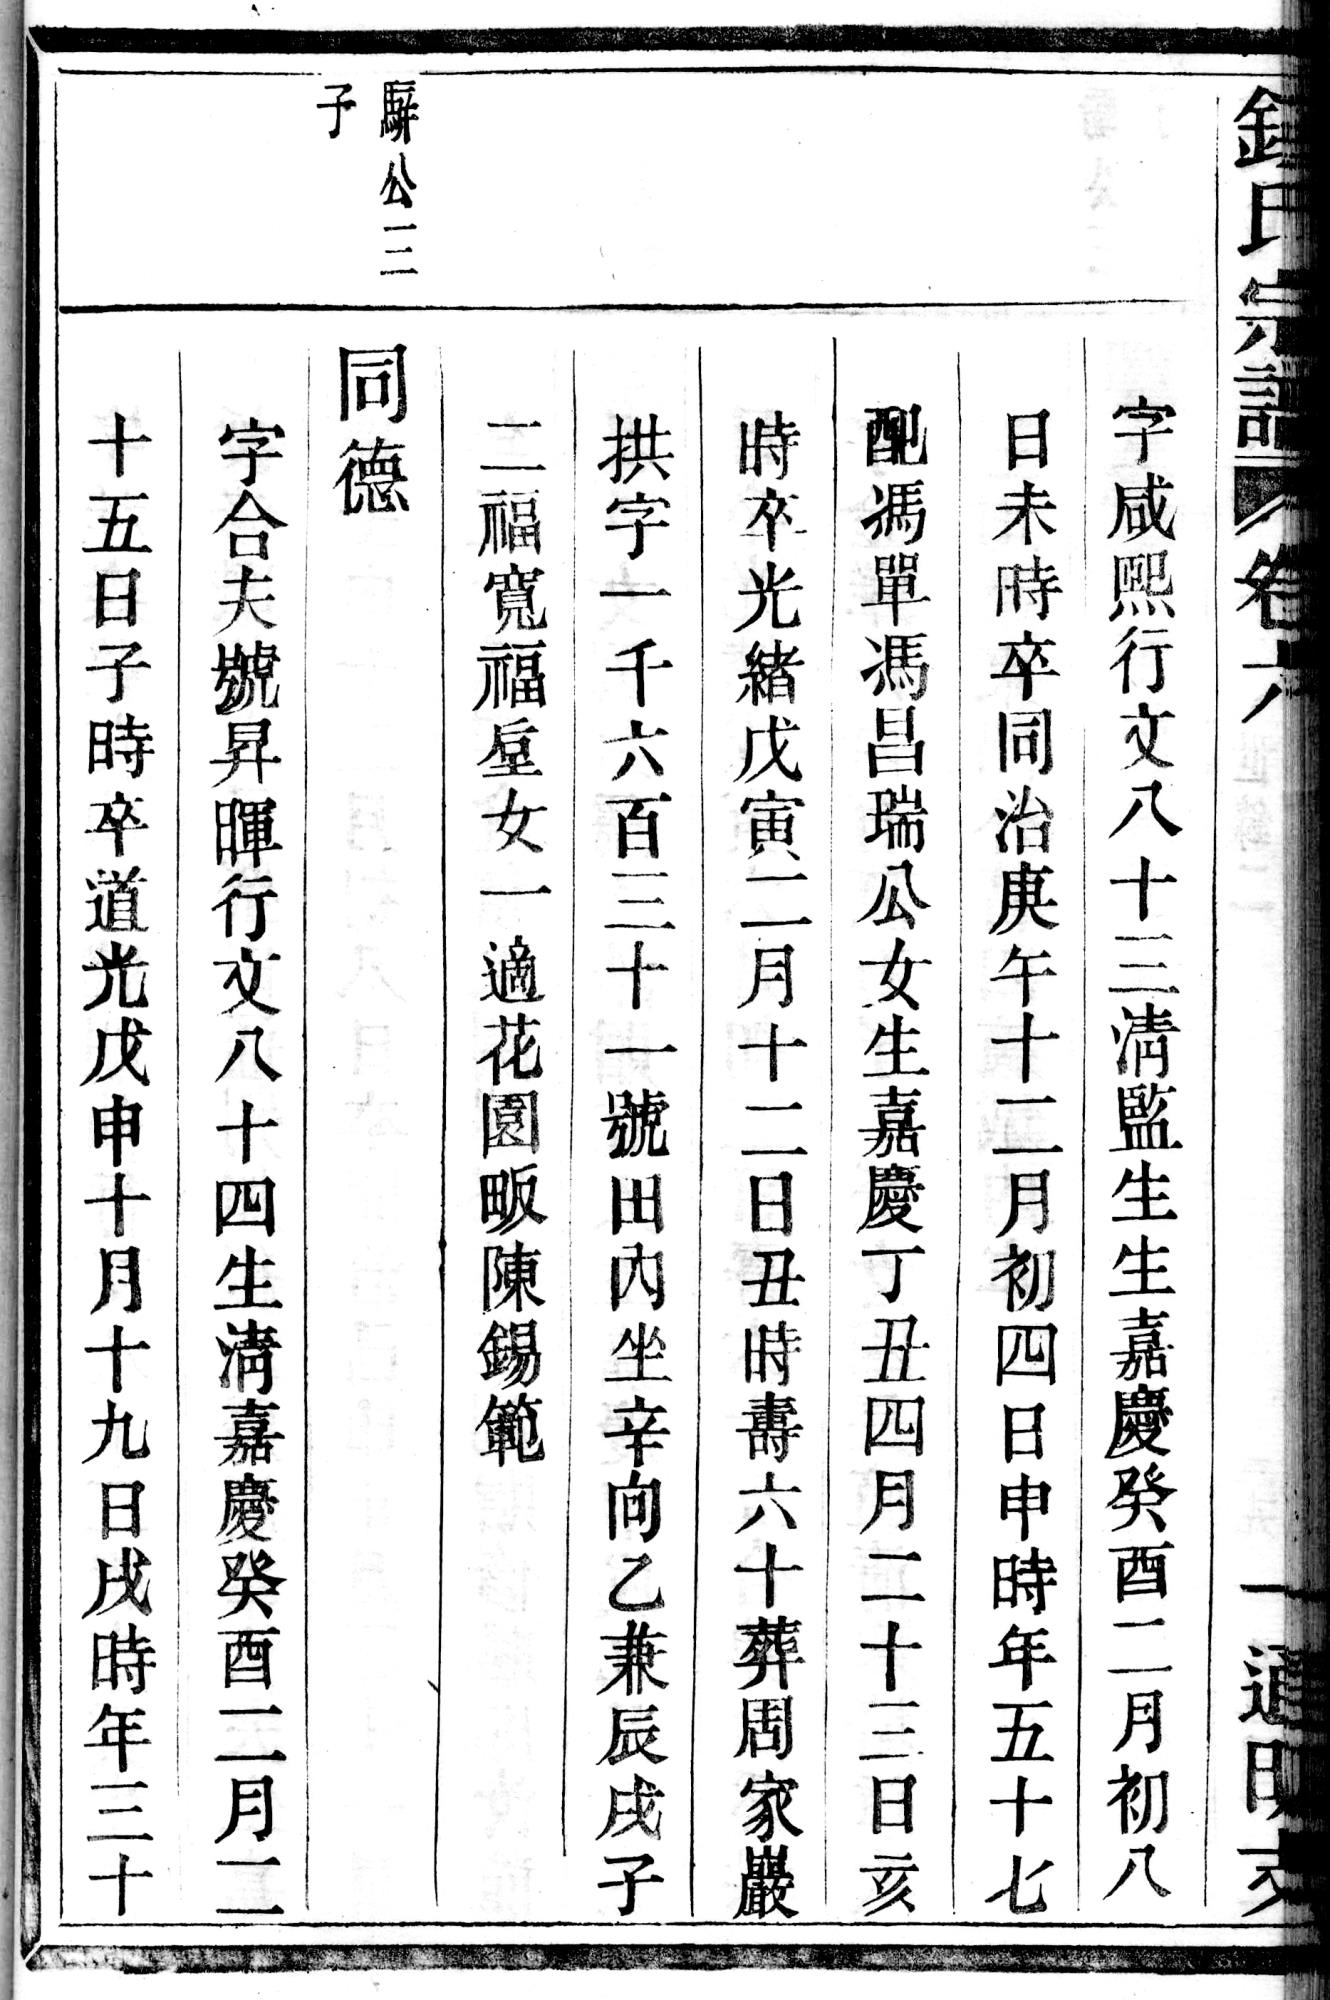 鍾氏宗譜
卷六
一
通明支
字咸熙行文八十三淸監生生嘉慶癸酉二月初八
日未時卒同治庚午十二月初四日申時年五十七
配馮單馮昌瑞公女生嘉慶丁丑四月二十三日亥
時卒光緒戊寅二月十二日丑時壽六十葬周家巖
拱字一千六百三十一號田內坐辛向乙兼辰戌子
二福寬福垕女一適花園畈陳錫範
騈公三
子
同德
字合夫號昇暉行文八十四生淸嘉慶癸酉二月二
十五日子時卒道光戊申十月十九日戌時年三十